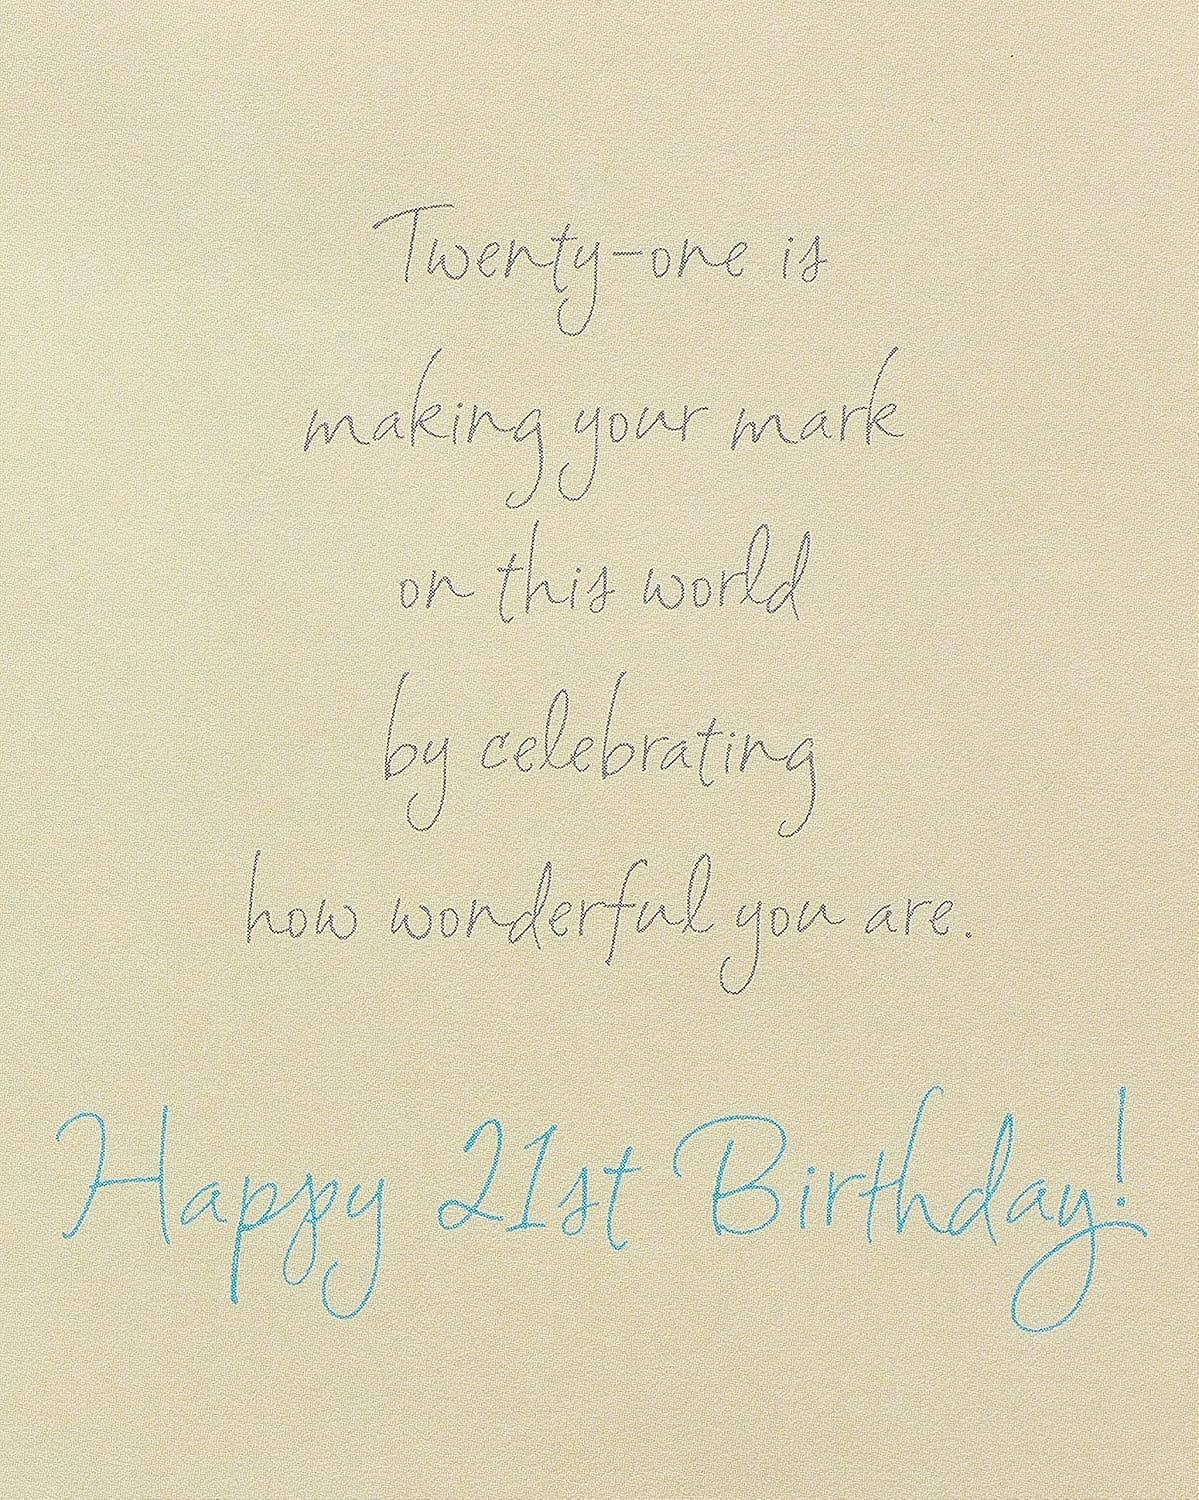 Twenty-one is
making your mark
on this world
by celebrating
how wonderful you are.
Happy 21st Birthday!